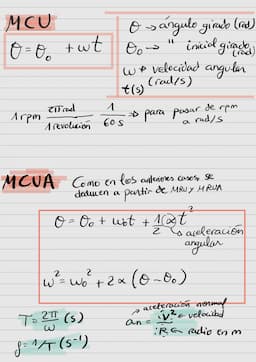 MCU
θ = θ₀ + ωt
θ → ángulo girado (rad)
θ₀ → " inicial girado (rad)
ω → velocidad angular (rad/s)
t(s)
1 rpm 2π rad / 1 revolución 1 / 60 s ⇒ para pasar de rpm a rad/s
MCUA
Como en los anteriores casos, se
deducen a partir de MRU y MRUA
θ = θ₀ + ω₀t + 1/2 α t²
↳ aceleración
angular
ω² = ω₀² + 2α (θ - θ₀)
T = 2π/ω (s)
f = 1/T (s⁻¹)
→ aceleración normal
an = v²/R → velocidad
R ← radio en m